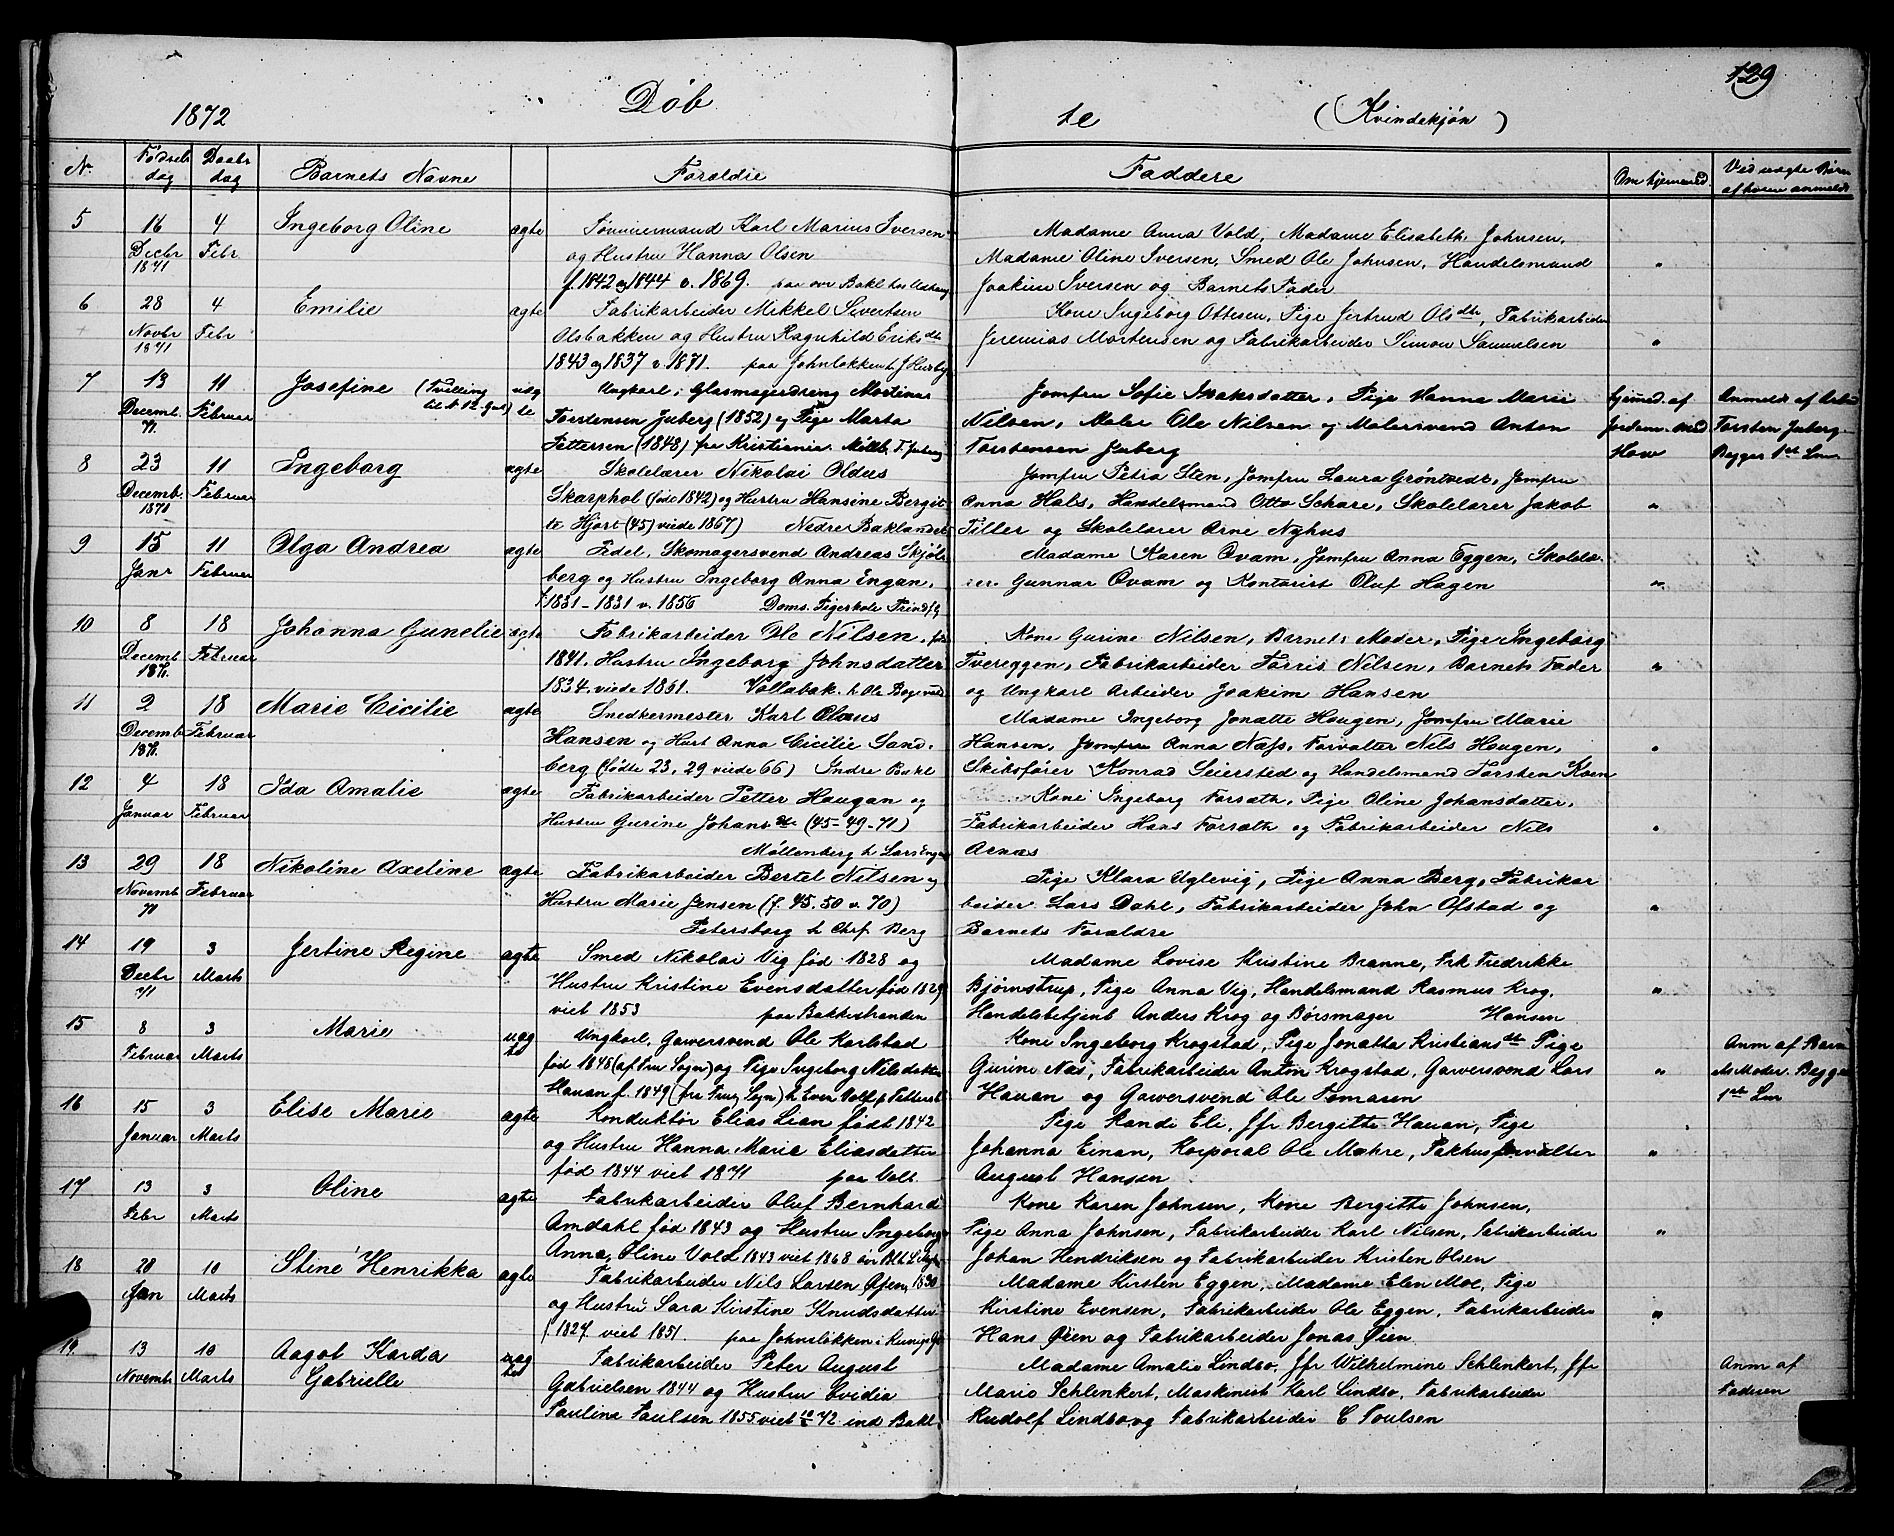 129
1872 Döb te (Kvindekjön)
No. Fødsels dag Daabs dag Barnets Navne Forældre Faddere Om hjemmed. Ved uægte Børn af hvem anmeldt
5 16 Decbr 1871 4 Febr Ingeborg Oline ægte
Tømmermand Karl Marius Iversen
og Hustru Hanna Olsen
f. 1842 og 1844 v. 1869. paa øvr Bakl hos
Madame Anna Vold, Madame Elisabeth Johnsen,
Madame Oline Iversen, Smed Ole Johnsen, Handelsmand
Joakim Iversen og Barnets Fader
"
6 28 Novbr 1871 4 Febr Emilie ægte
Fabrikarbeider Mikkel Sivertsen
Olsbakken og Hustru Ragnhild Eriksdtr
1843 og 1837 v. 1871. paa Johnsløkken
Kone Ingeborg Ottesen, Pige Jertrud Olsdtr, Fabrikarbeider
Jeremias Mortensen og Fabrikarbeider Simon Samuelsen
"
7 13 Decemb. 71. 11 Februar Josefine (Tvilling til N 12 Gut) uægte
Ungkarl, Glasmagerdreng Martinus
Torstensen Juberg (1852) og Pige Marta
Pettersen (1848) fra Kristiania. Møllb. T. Juberg
Jomfru Sofie Isaksdatter, Pige Hanna Marie
Nilsen, Maler Ole Nilsen og Malersvend Anton
Torstensen Juberg
hjemmed. af
Jordem. Mad
How
Anmeldt af
Torsten Juberg
Begges 1st Lm
8 23 Decemb. 1871 11 Februar Ingeborg ægte
Skolelærer Nikolai Oldus
Skarphol (født 1842) og Hustru Hansine Bergit
te Hjort (45) viede 1867) Nedre Baklandet
Jomfru Petra Sten, Jomfru Laura Grøntvedt, Jomfru
Anna Hals, Handelsmand Otto Schare, Skolelærer Jakob
Tiller og Skolelærer Arne Nyhus
"
9 15 Janr 11 Februar Olga Andrea ægte
Pedel, Skomagersvend Andreas Skjöls
berg og Hustru Ingeborg Anna Engan.
f. 1831 - 1831 v. 1856 Doms. Pigeskole
Madame Karen Qvam, Jomfru Anna Eggen, Skolelæ
rer Gunnar Qvam og Kontorist Oluf Hagen
"
10 8 Decemb 1871. 18 Februar Johanna Gunelie ægte
Fabrikarbeider Ole Nilsen, født
1841. Hustru Ingeborg Johnsdatter
1834. viede 1861. Vollabak. h. Ole
Kone Gurine Nilsen, Barnets Moder, Pige Ingeborg
Tvereggen, Fabrikarbeider Torris Nilsen, Barnets Fader
og Ungkarl Arbeider Joakim Hansen
"
11 2 Decemb 1871. 18 Februar Marie Cicilie ægte
Snedkermester Karl Olaus
Hansen og Hust Anna Cicilie Sand.
berg (fødte 23, 29 viede 66) Indre Bakl
Madame Ingeborg Jonatte Haugen, Jomfru Marie
Hansen, Jomfru Anna Næss, Forvalter Nils Haugen,
Skibsfører Konrad Seiersted og Handelsmand Torsten Koen
"
12 4 Januar 18 Februar Ida Amalie ægte
Fabrikarbeider Petter Haugan og
Hustru Gurine Johansdtr (45-49-71)
Møllenberg h Lars Engen
Kone Ingeborg Forsæth, Pige Oline Johansdatter,
Fabrikarbeider Hans Forsæth og Fabrikarbeider Nils
Aenæs
"
13 29 Novemb 71 18 Februar Nikoline Axeline ægte
Fabrikarbeider Bertel Nilsen og
Hustru Marie Jensen (f. 45. 50 v. 70)
Petersborg h Chrf Berg
Pige Klara Uglevig, Pige Anna Berg, Fabrikar
beider Lars Dahl, Fabrikarbeider John Ofstad og
Barnets Forældre
"
14 19 Decbr 71 3 Marts Jertine Regine ægte
Smed Nikolai Vig født 1828 og
Hustru Kristine Evensdatter født 1829
viet 1853 paa Bakkestranden
Madame Lovise Kristine Branne, Frk Fredrikke
Bjørnstrup, Pige Anna Vig, Handelsmand Rasmus Krog,
Handelsbetjent Anders Krog og Børsmager Hansen
"
15 8 Februar 3 Marts Marie uægte
Ungkarl, Garversvend Ole Karlstad
født 1848 (af Frue Sogn) og Pige Ingeborg Nilsdatter
Hauan f. 1849 (fra Frue Sogn) h Even
Kone Ingeborg Krogstad, Pige Jonatta Kristiansdtr Pige
Gurine Næs, Fabrikarbeider Anton Krogstad, Garversvend Lars
Hauan og Garversvend Ole Tomasen
"
Anm af Barn
ets Moder. Begges
1ste Lm
16 15 Januar 3 Marts Elise Marie ægte
Konduktør Elias Lian født 1842
og Hustru Hanna Marie Eliasdatter
født 1844 viet 1871 paa Voll
Pige Rande Eli, Jfr Bergitte Hauan, Pige
Johanna Einan, Korporal Ole Mæhre, Pakhusforvalter
August Hansen
"
17 13 Febr 3 Marts Oline ægte
Fabrikarbeider Oluf Bernhard
Amdahl født 1843 og Hustru Ingeborg
Anna Oline Vold 1843 viet 1868
Kone Karen Johnsen, Kone Bergitte Johnsen,
Pige Anna Johnsen, Fabrikarbeider Karl Nilsen, Fabrikarbeider
Johan Hendriksen og Fabrikarbeider Kristen Olsen
"
18 28 Jan 10 Marts Stine Henrikka ægte
Fabrikarbeider Nils Larsen Øien, 1830
og Hustru Sara Kirstine Knudsdatter
f. 1827. viet 1851. paa Johnsløkken i
Madame Kirsten Eggen, Madame Elen Moe, Pige
Kirstine Evensen, Fabrikarbeider Ole Eggen, Fabrikarbeider
Hans Øien og Fabrikarbeider Jonas Øien
"
19. 13 Novemb 10 Marts Aagot Karda Gabrielle uægte
Fabrikarbeider Peter August
Gabrielsen 1844 og Hustru Evidia
Paulina Paulsen 1855 viet 72 ind Bakl
Madame Amalie Lindbo, Jfr Wilhelmine Schlenkert, Jfr
Marie Schlenkert, Maskinist Karl Lindbo, Fabrikarbeider
Rudolf Lindbo og Fabrikarbeider C Poulsen
Anm af
Faderen